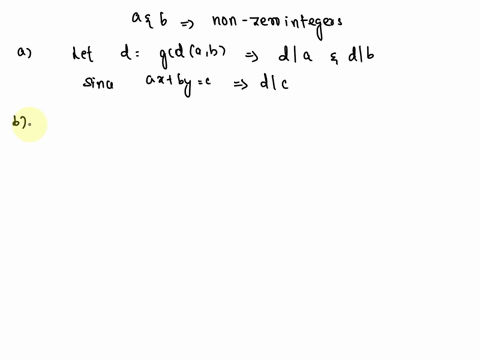 a & b => non-zero integers
a) Let d = gcd(a,b) => d|a & d|b
Sina ax+by=c => d|c
b).